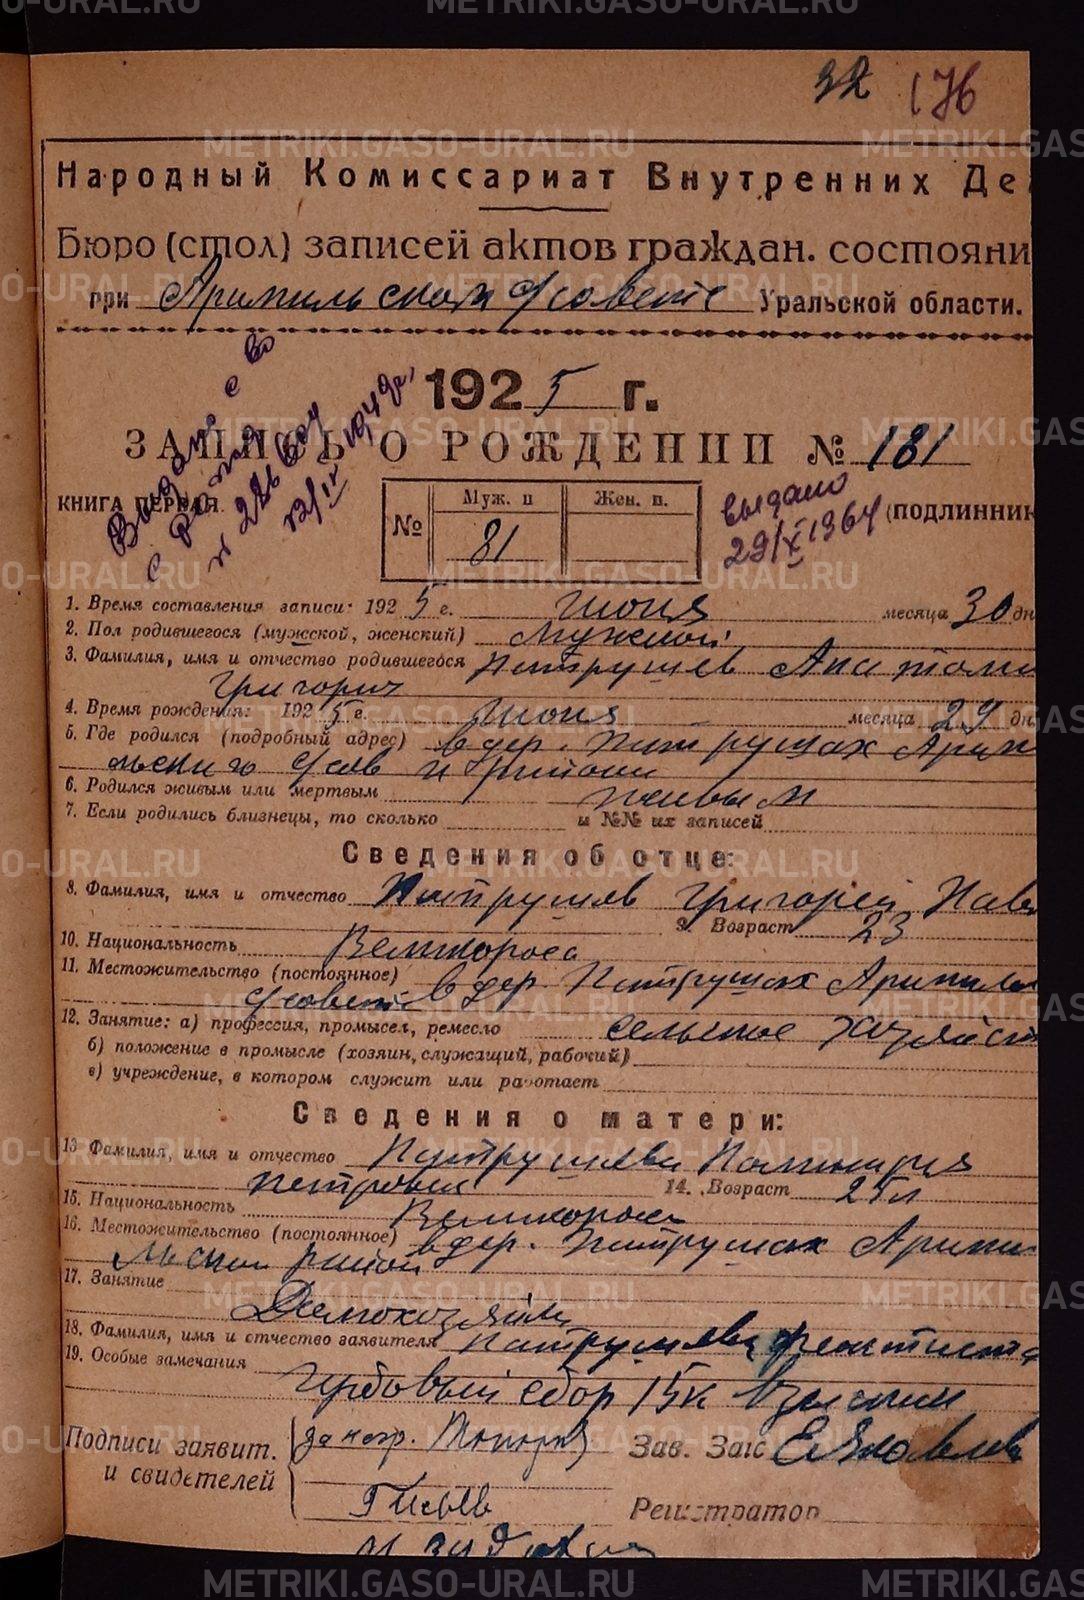 32 176
Народный Комиссариат Внутренних Де
Бюро (стол) записей актов граждан. состояни
при Арамильском с/совете Уральской области.
1925 г.
ЗАПИСЬ О РОЖДЕНИИ № 181
Выдано с во
КНИГА ПЕРВАЯ.
№ Муж. п Жен. п.
81
выдано
29/X 1964
(ПОДЛИННИК
1. Время составления записи: 1925 г. Июня месяца 30 дн
2. Пол родившегося (мужской, женский) Мужской
3. Фамилия, имя и отчество родившегося Патрушев Анатоли
Григорич
4. Время рождения: 1925 г. Июня месяца 29 дн.
5. Где родился (подробный адрес) в дер. Патрушах Арами
льского с/сов района
6. Родился живым или мертвым живым
7. Если родились близнецы, то сколько и №№ их записей
Сведения об отце:
8. Фамилия, имя и отчество Патрушев Григорей Пав
9. Возраст 23
10. Национальность Великороса
11. Местожительство (постоянное) в дер Патрушах Арамиль
с/совета
12. Занятие: а) профессия, промысел, ремесло сельское хозяйст
б) положение в промысле (хозяин, служащий, рабочий)
в) учреждение, в котором служит или работает
Сведения о матери:
13 Фамилия, имя и отчество Патрушева
Петровна 14. Возраст 25 л
15. Национальность Великороса
16. Местожительство (постоянное) в дер. Патрушах Арами
льской район
17. Занятие Домохозяйка
18. Фамилия, имя и отчество заявителя Патрушева
19. Особые замечания Гербовый сбор 15к взыскан
Подписи заявит. за негр. Зав. Загс Е Яковлев
и свидетелей
Регистратор
METRIKI.GASO-URAL.RU